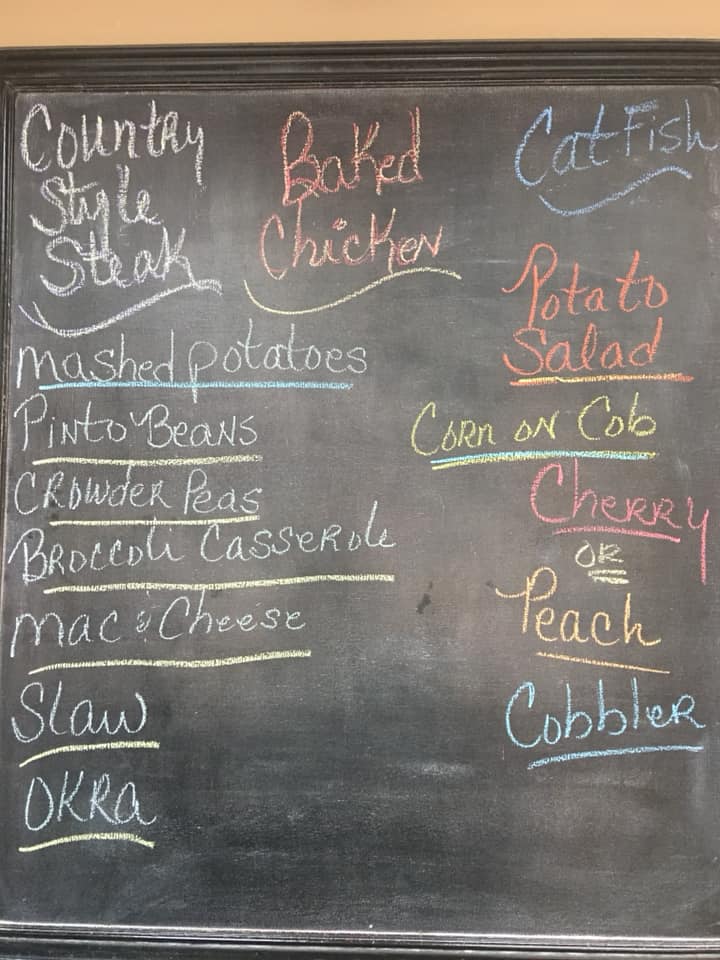 Country
Style
Steak
Baked
Chicken
CatFish
mashed potatoes
Pinto Beans
Crowder Peas
Broccoli Casserole
mac & Cheese
Slaw
OKRA
Potato
Salad
Corn on Cob
Cherry
OR
Peach
Cobbler